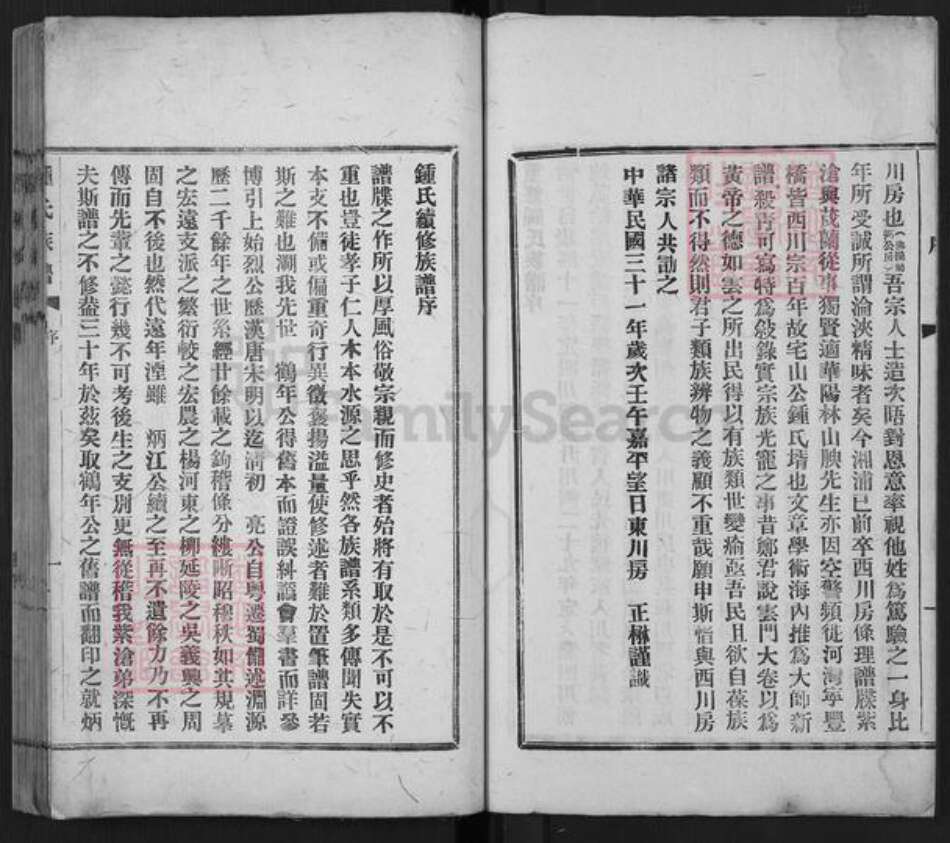 川房也吾宗人士造次晤對恩意率視他姓爲篤驗之一身比
年所受誠所謂淪浹精味者矣今湘浦已前卒西川房條理譜牒紫
滄與茂蘭從事獨賢適華陽林山腴先生亦因空警頻徙河灣寧豐
橋皆西川宗百年故宅山公鍾氏壻也文章學術海內推爲大師新
譜殺靑可寫特爲敍錄實宗族光寵之事昔鄭君說雲門大卷以爲
黃帝之德如雲之所出民得以有族類世變痛亟吾民且欲自葆族
類而不得然則君子類族辨物之義顧不重哉願申斯恉與西川房
諸宗人共勖之
中華民國三十一年歲次壬午嘉平望日東川房 正楙謹識
鍾氏續修族譜序
譜牒之作所以厚風俗敬宗親而修史者殆將有取於是不可以不
重也豈徒孝子仁人木本水源之思乎然各族譜系類多傳聞失實
本支不備或偏重奇行異徵褒揚溢量使修述者難於置筆譜固若
斯之難也溯我先世 鶴年公得舊本而證誤糾譌會羣書而詳參
博引上始烈公歷漢唐宋明以迄淸初 亮公自粵遷蜀備述淵源
歷二千餘年之世系經廿餘載之鉤稽條分縷晰昭穆秩如其規摹
之宏遠支派之繁衍較之宏農之楊河東之柳延陵之吳義興之周
固自不後也然代遠年湮雖 炳江公續之至再不遺餘力乃不再
傳而先輩之懿行幾不可考後生之支別更無從稽我紫滄弟深慨
夫斯譜之不修葢三十年於茲矣取鶴年公之舊譜而翻印之就炳
鍾氏族譜 序 一